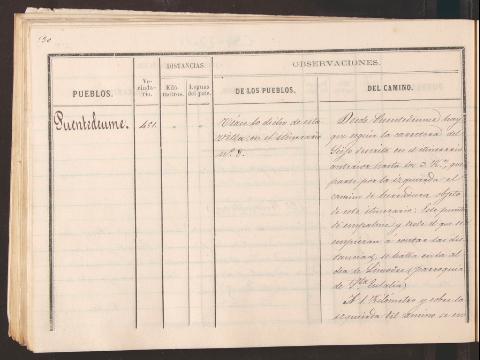 130
PUEBLOS.
Vecindario.
DISTANCIAS
Kilómetros.
Leguas del país.
OBSERVACIONES.
DE LOS PUEBLOS.
DEL CAMINO.
Puentedeume.
451.
"
"
Véase lo dicho de esta
Villa, en el itinerario
Nº. 8.
Desde Puentedeume, hay
que seguir la carretera del
descrita en el itinerario
anterior hasta los 3 K.ᵐ, que
parte por la izquierda el
camino de herradura objeto
de este itinerario: Este punto
de empalme, y desde el que se
empiezan a contar las dis-
tancias, se halla en la al
dea de parroquia
de Sta. Eulalia,
A 1 Kilómetro y sobre la
izquierda del camino se en